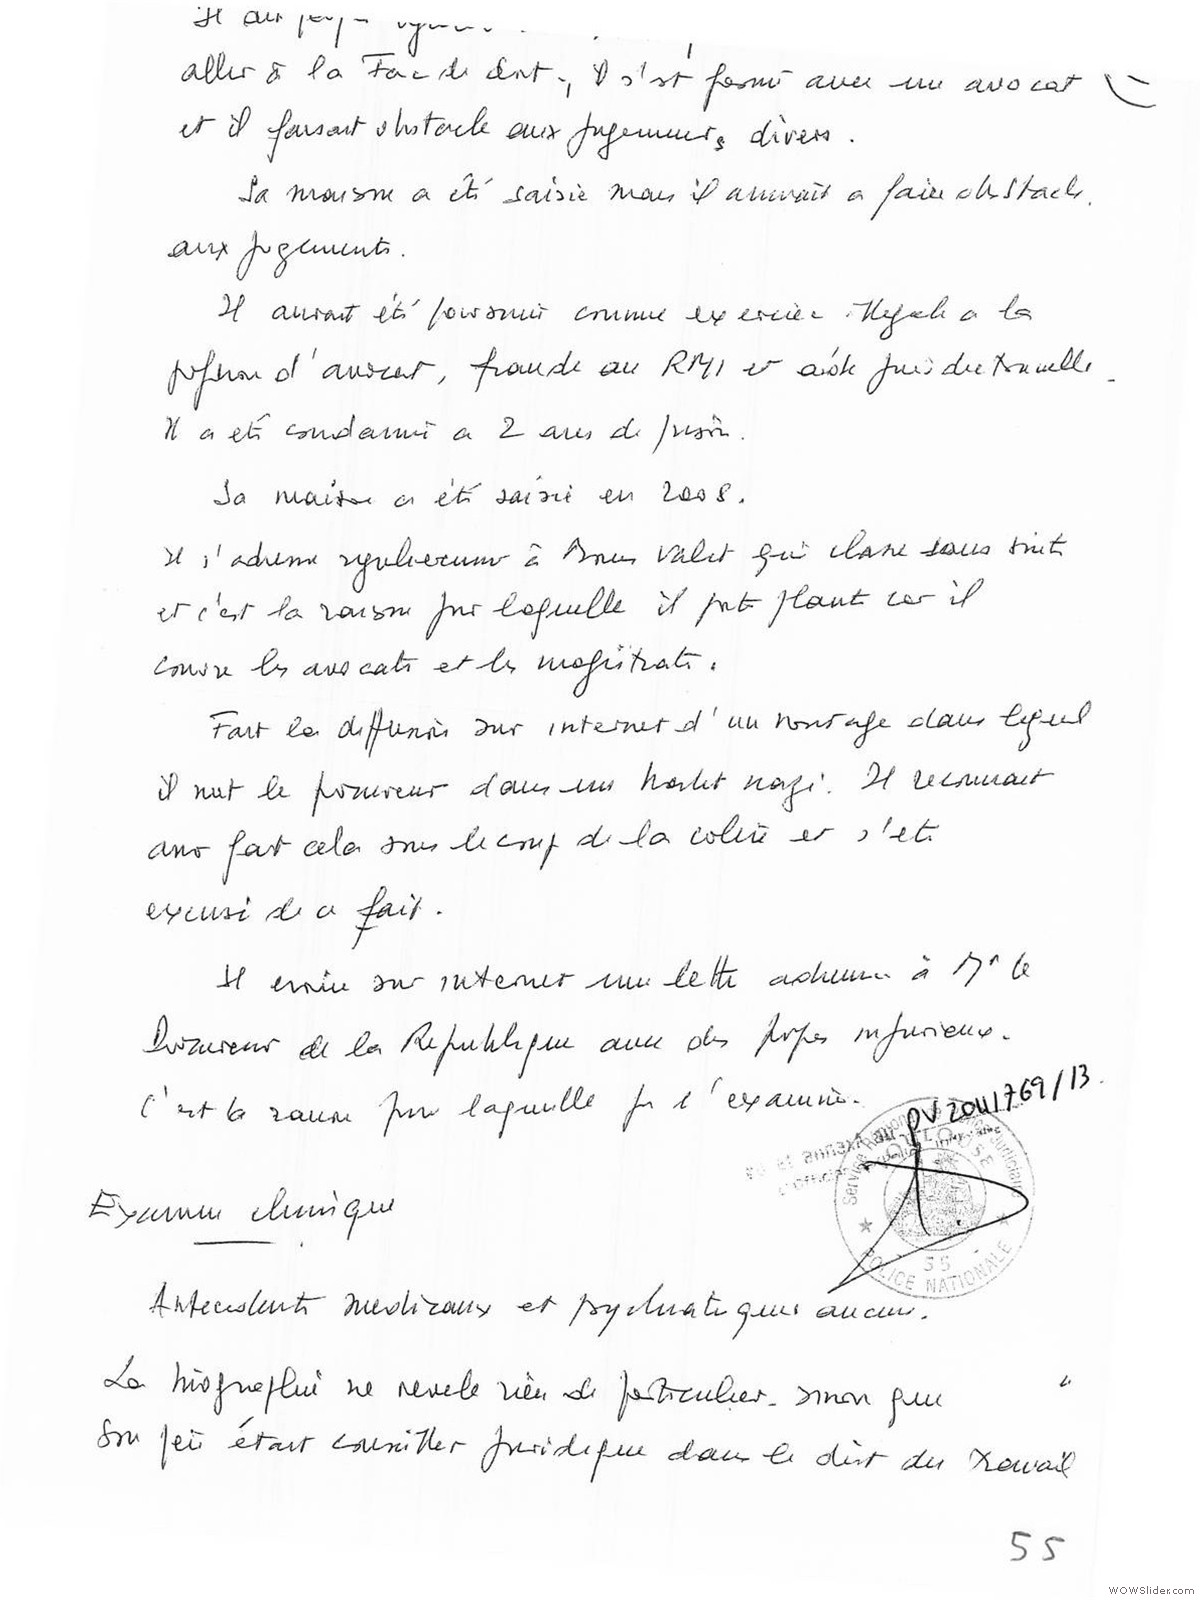 Il
aller à la Fac de droit, il s'est formé avec un avocat
et il faisait obstacle aux jugements divers.
Sa maison a été saisie mais il aurait a faire obstacle
aux jugements.
Il aurait été poursuivi comme exercice illegale a la
profession d'avocat, fraude au RMI et aide juridictionnelle.
Il a été condamné a 2 ans de prison.
Sa maison a été saisie en 2008.
Il s'adresse regulierement à Valet qui classe sans suite
et c'est la raison pour laquelle il porte plainte car il
couvre les avocats et les magistrats.
Fait la diffusion sur internet d'un montage dans lequel
il met le procureur dans un nazi. Il reconnait
avoir fait cela sous le coup de la colère et s'etre
excusé de ce fait.
Il ecrire sur internet une lettre adressée à Mr le
Procureur de la Republique avec des propos injurieux.
C'est la raison pour laquelle je l'examine.
PV 2011/769/13
Service Régional de Police Judiciaire
TOULOUSE
55
POLICE NATIONALE
Examen clinique
Antecedents medicaux et psychiatriques aucun.
La biographie ne revele rien de particulier sinon que
Son père était conseiller juridique dans le droit du travail
55
WOWSlider.com